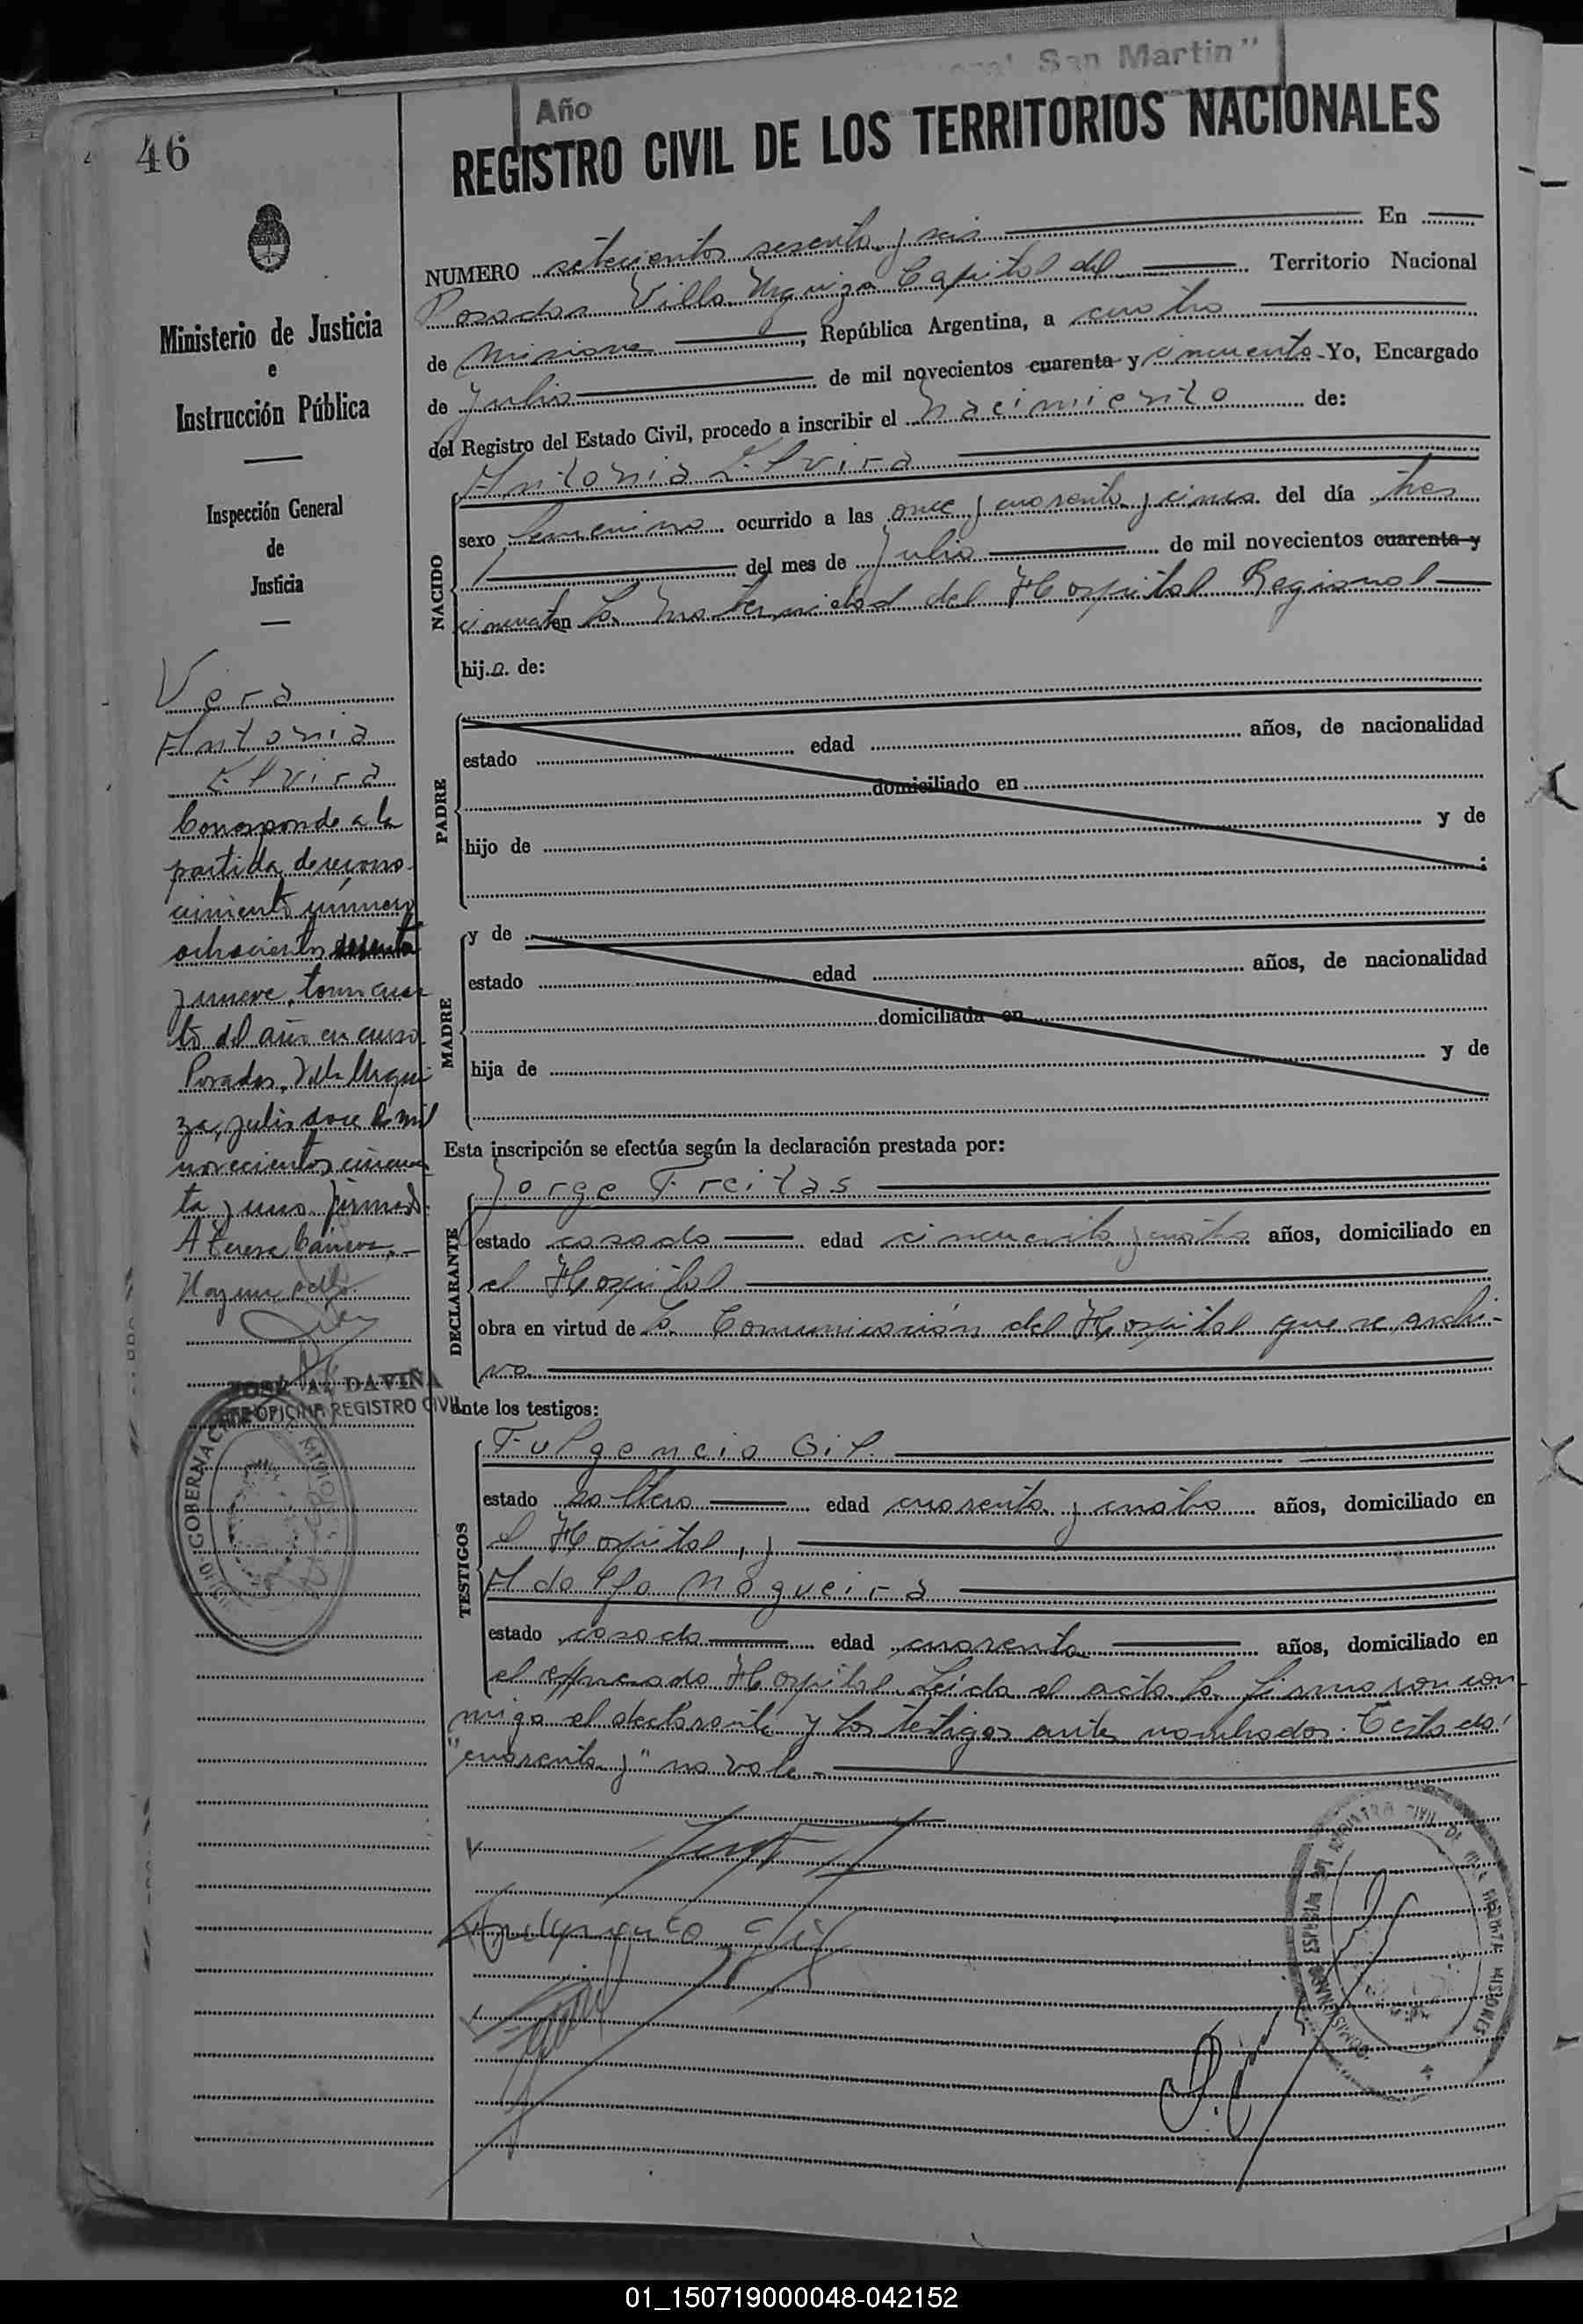 "General San Martin"
Año
46
REGISTRO CIVIL DE LOS TERRITORIOS NACIONALES
NUMERO setecientos sesenta y seis En
Posadas Villa Urquiza Capital del Territorio Nacional
de Misiones, República Argentina, a cuatro
de Julio de mil novecientos cuarenta y cincuenta Yo, Encargado
del Registro del Estado Civil, procedo a inscribir el Nacimiento de:
Ministerio de Justicia
e
Instrucción Pública
Inspección General
de
Justicia
NACIDO
Antonia Elvira
sexo femenino ocurrido a las once y cuarenta y cinco del día tres
del mes de Julio de mil novecientos cuarenta y
en la Maternidad del Hospital Regional
hija de:
Vera
Antonia
Elvira
Corresponde a la
partida de recono-
cimiento número
ochocientos
y nueve, tomo cuar
to del año en curso
Posadas, Villa Urqui
za, julio doce de mil
novecientos cincuen
ta y uno firmado
A Teresa
Hay un sello
JOSE A. DAVIÑA
JEFE OFICINA REGISTRO CIVIL
GOBERNACION
PADRE
estado edad años, de nacionalidad
domiciliado en
hijo de y de
MADRE
y de
estado edad años, de nacionalidad
domiciliada en
hija de y de
Esta inscripción se efectúa según la declaración prestada por:
DECLARANTE
Jorge Freitas
estado casado edad cincuenta y cuatro años, domiciliado en
el Hospital
obra en virtud de la Comunicación del Hospital que se archi-
va
ante los testigos:
TESTIGOS
Fulgencio Gil
estado soltero edad cuarenta y cuatro años, domiciliado en
el Hospital, y
Adolfo Nogueira
estado casado edad cuarenta años, domiciliado en
el expresado Hospital Leída el acta la firmaron con
migo el declarante y los testigos antes nombrados: Testado:
"cuarenta y" no vale.-
REGISTRO CIVIL DE
MISIONES
01_150719000048-042152